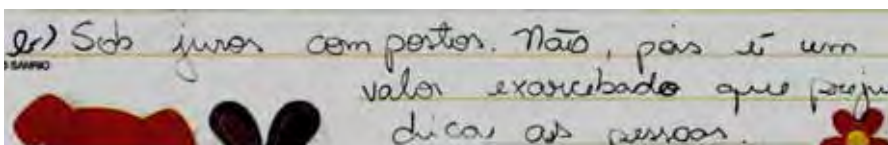 b) Sob juros compostos. Não, pois é um
© SANRIO
valor exarcebado que preju
dica as pessoas.